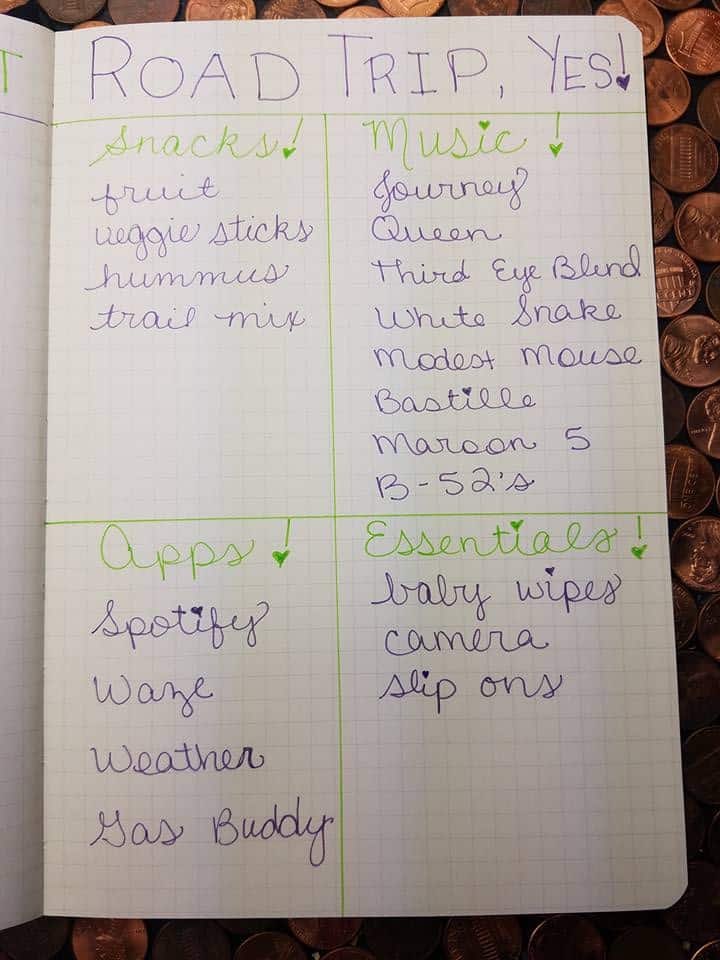 T
ROAD TRIP, YES!
Snacks!
fruit
veggie sticks
hummus
trail mix
Music!
Journey
Queen
Third Eye Blind
White Snake
Modest Mouse
Bastille
Maroon 5
B-52's
Apps!
Spotify
Waze
Weather
Gas Buddy
Essentials!
baby wipes
camera
slip ons